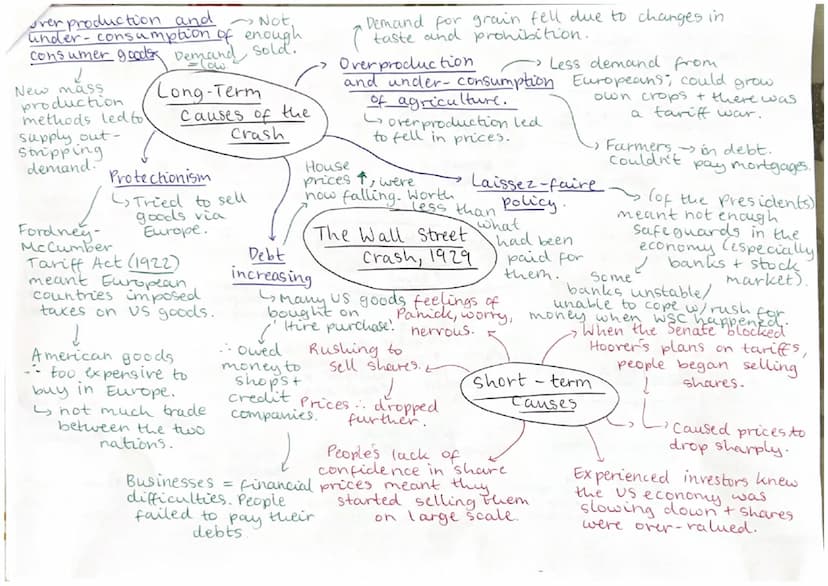 overproduction and
under-consumption of
consumer goods
Not
enough
sold.
Demand
= low
New mass
production
methods led to
supply out-
stripping
demand.
Long-Term
causes of the
crash
Demand for grain fell due to changes in
taste and prohibition.
Overproduction
and under-consumption
of agriculture.
overproduction led
to fell in prices.
Less demand from
Europeans; could grow
own crops + there was
a tariff war.
Farmers → in debt.
Couldn't pay mortgages.
Protectionism
Tried to sell
goods via
Europe.
Fordney-
McCumber
Tariff Act (1922)
meant European
countries imposed
taxes on US goods.
American goods
∴ too expensive to
buy in Europe.
not much trade
between the two
nations.
House
prices ↑, were
now falling. Worth
less than
what
had been
paid for
them.
Laissez-faire
policy.
(of the Presidents)
meant not enough
safeguards in the
economy (especially
banks + stock
market).
Some
banks unstable/
unable to cope w/ rush for
money when WSC happened.
The Wall Street
Crash, 1929
Debt
increasing
Many US goods
bought on
'Hire purchase'.
∴ Owed
money to
shops +
credit
companies.
Businesses = financial
difficulties. People
failed to pay their
debts.
short-term
causes
feelings of
Panick, worry,
nervous.
Rushing to
sell shares.
Prices ∴ dropped
further.
People's lack of
confidence in share
prices meant they
started selling them
on large scale.
When the Senate blocked
Hoover's plans on tariffs,
people began selling
shares.
Caused prices to
drop sharply.
Experienced investors knew
the US economy was
slowing down + shares
were over-valued.